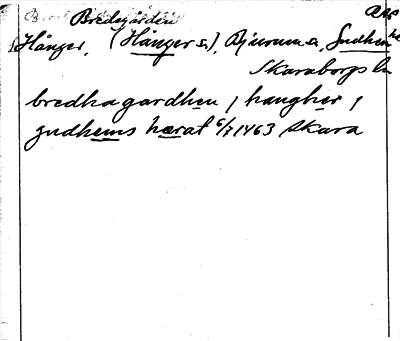 Bredegården
Hånger, (Hånger s.), Bjurum s., Gudhem hd
Skaraborgs län
bredha gardhen / haugher /
gudhems hærat 6/7 1463 Skara